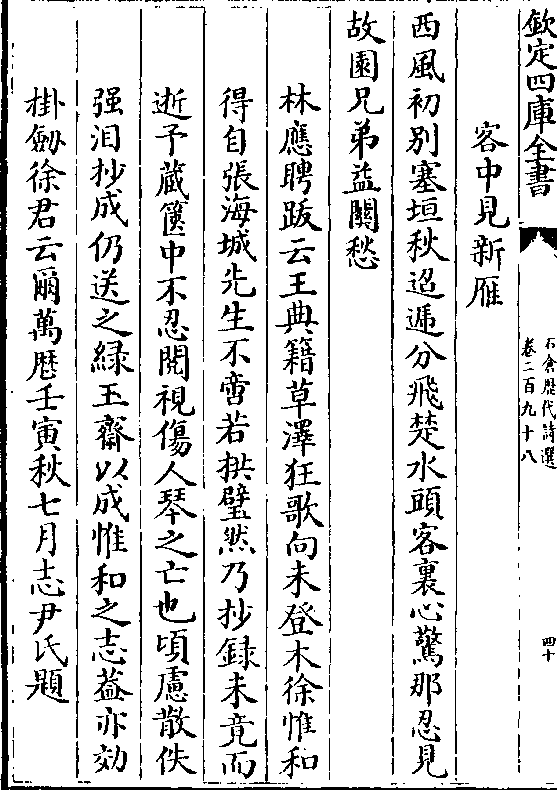 欽定四庫全書
石倉歴代詩選
卷二百九十八
四十
客中見新雁
西風初别塞垣秋迢遞分飛楚水頭客裏心驚那忍見
故園兄弟益關愁
林應聘跋云王典籍草澤狂歌向未登木徐惟和
得自張海城先生不啻若拱璧然乃抄録未竟而
逝予藏篋中不忍閱視傷人琴之亡也頃慮散佚
强泪抄成仍送之緑玉齋以成惟和之志葢亦効
掛劒徐君云爾萬歴壬寅秋七月志尹氏題